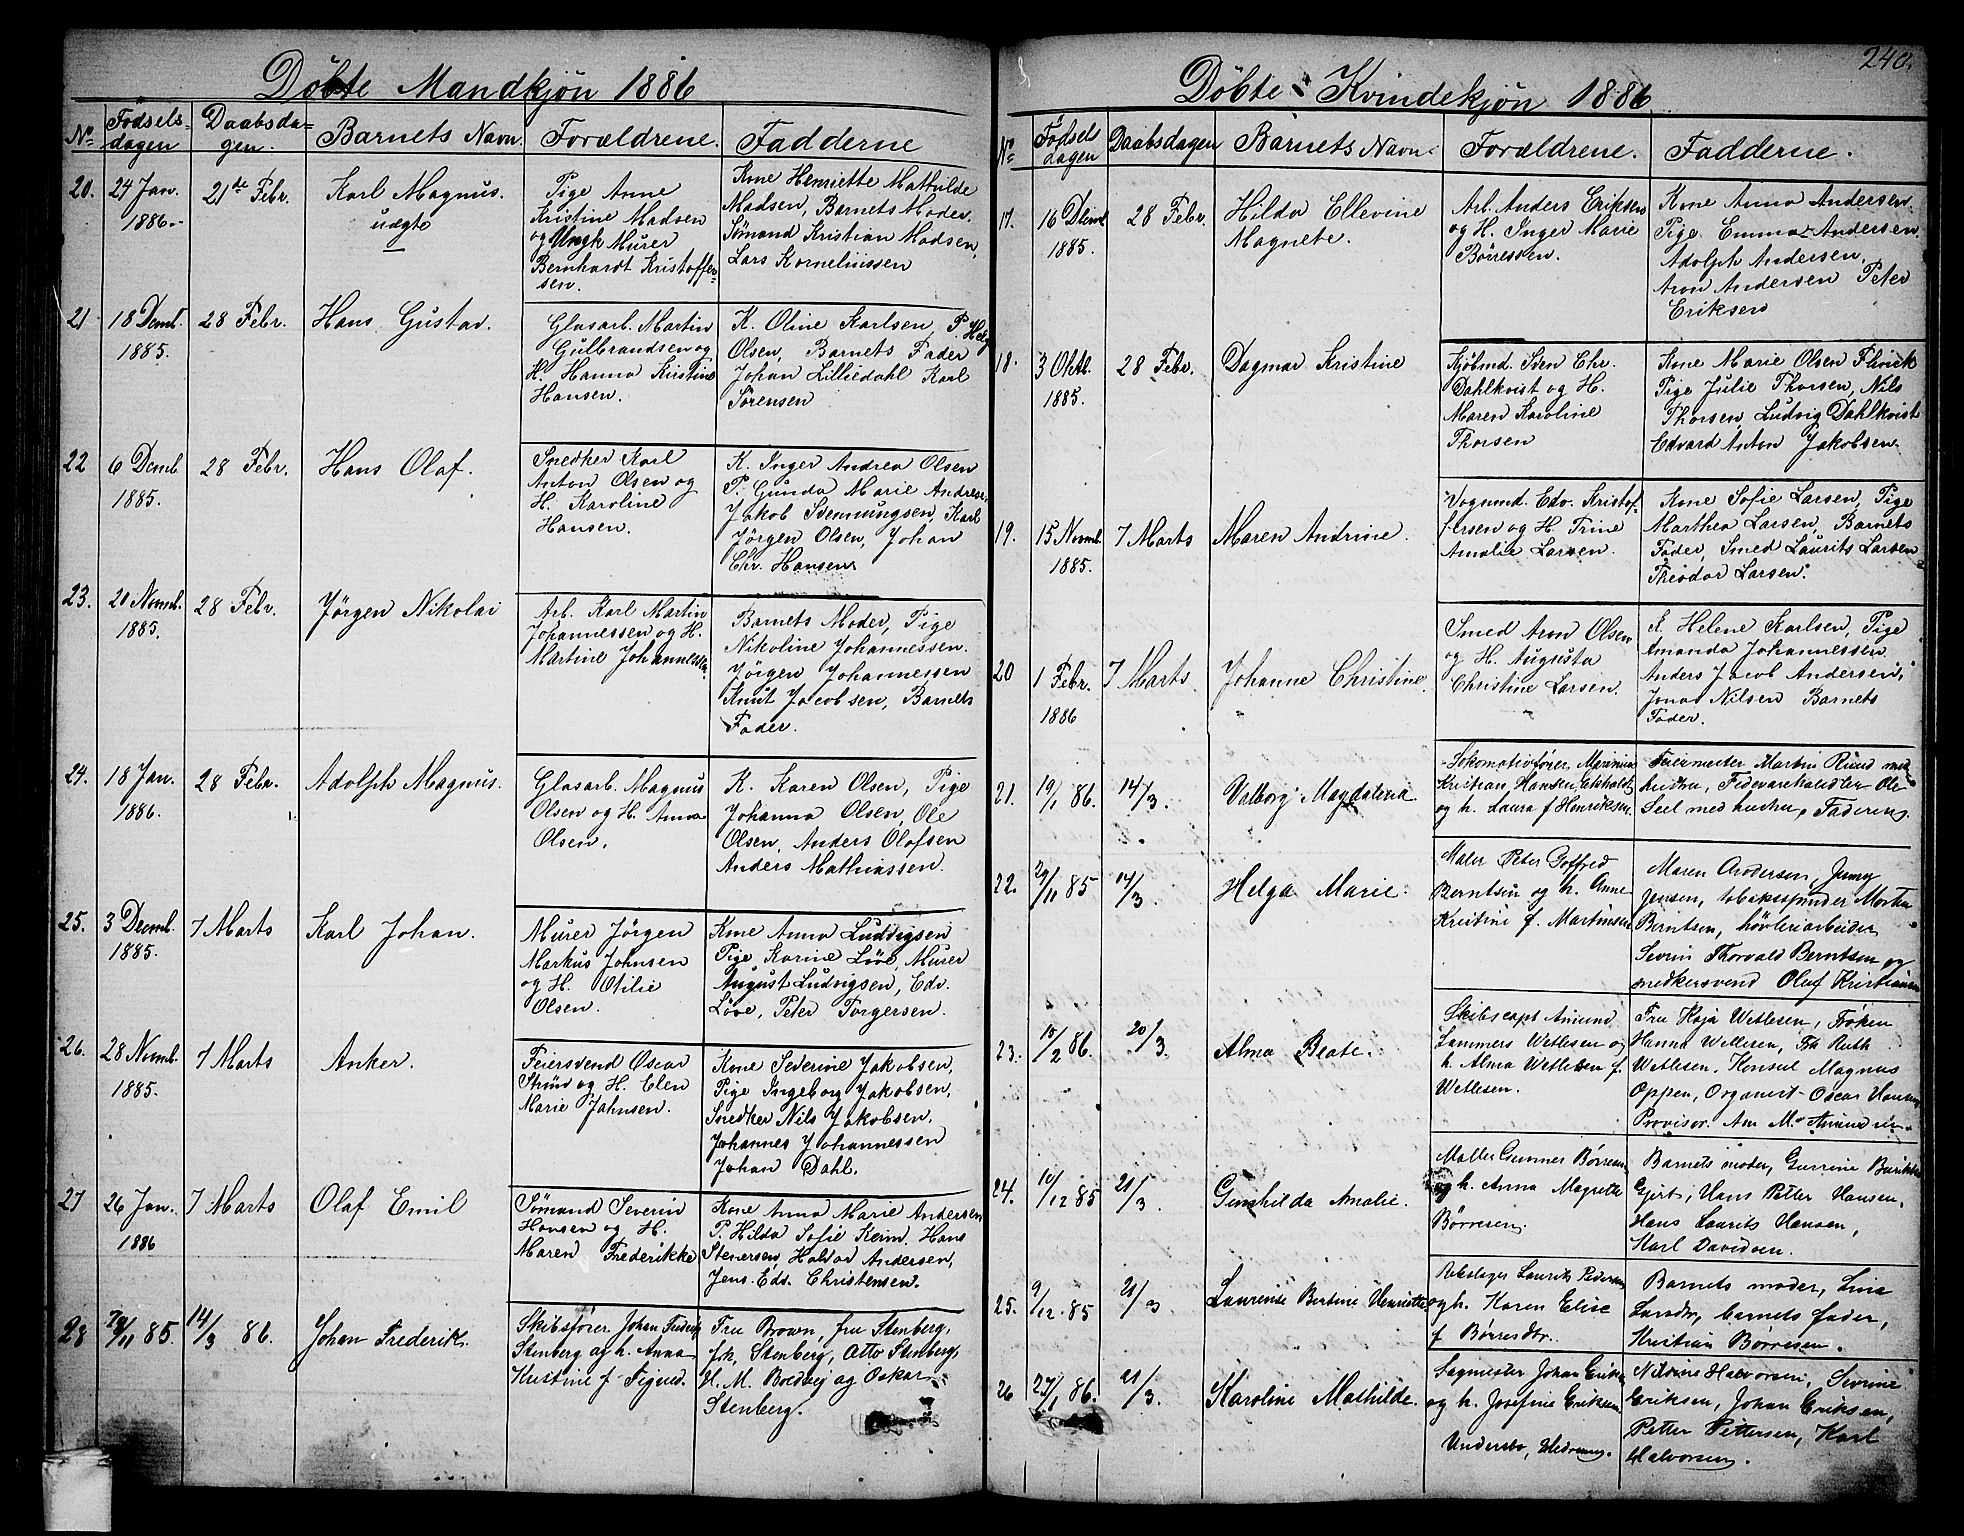 240.
Döbte Mandkjøn 1886
No. Fødselsdagen Daabsdagen. Barnets Navn Forældrene. Fadderne
20. 24 Jan. 1886.- 21de Febr. Karl Magnus. uægte
Pige Anne
Kristine Madsen
og Ungk Murer
Bernhardt Kristoffer-
sen.
Kone Henriette Mathilde
Madsen, Barnets Moder.
Sømand Kristian Madsen,
Lars Korneliussen
21 18 Demb. 1885. 28 Febr. Hans Gustav.
Glasarb. Martin
Gulbrandsen og
H. Hanna Kristine
Hansen.
K. Oline Karlsen, P. Helg
Olsen, Barnets Fader
Johan Lilliedahl Karl
Sørensen
22 6 Demb 1885. 28 Febr. Hans Olaf.
Snedker Karl
Anton Olsen og
H. Karoline
Hansen.
K. Inger Andrea Olsen
P. Gunda Marie Andresen
Jakob Svenningsen, Karl
Jørgen Olsen, Johan
Chr. Hansen
23. 20 Novmb. 1885. 28 Febr. Jørgen Nikolai
Arb. Karl Martin
Johannessen og H.
Martine Johannessen.
Barnets Moder, Pige
Nikoline Johannessen.
Jørgen Johannessen
Knut Jacobsen, Barnets
Fader.
24. 18 Jan. 1886. 28 Febr. Adolph Magnus.
Glasarb. Magnus
Olsen og H. Anna
Olsen.
K. Karen Olsen, Pige
Johanna Olsen, Ole
Olsen, Anders Olafsen
Anders Mathiassen.
25. 3 Decmb. 1885. 7 Marts Karl Johan.
Murer Jørgen
Markus Johnsen
og H. Otilie
Olsen.
Kone Anna Ludvigsen
Pige Karine Løve, Murer
August Ludvigsen, Edv.
Løve, Peter Torgersen.
26. 28 Novmb. 1885. 7 Marts Anker.
Feiersvend Oscar
og H. Elen
Marie Jahnsen.
Kone Severine Jakobsen,
Pige Ingeborg Jakobsen,
Snedker Nils Jakobsen,
Johannes Johannessen
Johan Dahl.
27 26 Jan. 1886 7 Marts Olaf Emil
Sømand Severin
Hansen og H.
Maren Frederikke
Kone Anna Marie Andersen
P. Hilda Sofie Keim, Hans
Stenersen, Haldor Andersen,
Jens Edv. Christensen.
28 /11 85. 14/3 86. Johan Frederik.
Skibsfører Johan Frederik
Stenberg og h. Anna
Kristine f. Figved.
Fru Brown, fru Stenberg,
frk. Stenberg, Otto Stenberg,
H. M. Boedvej og Oskar
Stenberg.
Döbte Kvindekjøn 1886
No. Fødselsdagen Daabsdagen Barnets Navn. Forældrene. Fadderne.
17. 16 Demb 1885. 28 Febr. Hilda Ellevine Magnete.
Arb. Anders Eriksen
og H. Inger Marie
Børresen.
Kone Anna Andersen,
Pige Emma Andersen.
Adolph Andersen,
Aron Andersen Peter
Eriksen
18. 3 Oktb. 1885. 28 Febr. Dagmar Kristine
Kjøbmd. Sven Chr.
Dahlkvist og H.
Maren Karoline
Thorsen
Kone Marie Olsen Flivik
Pige Julie Thorsen, Nils
Thorsen, Ludvig Dahlkvist
Edvard Anton Jakobsen
19. 15 Novmb. 1885. 7 Marts Maren Andrine.
Vognmd. Edv. Kristof-
fersen og H. Trine
Amalie Larsen.
Kone Sofie Larsen, Pige
Marthea Larsen, Barnets
Fader, Smed Laurits Larsen
Theodor Larsen.
20 1 Febr. 1886 7 Marts. Johanne Christine.
Smed Aron Olsen
og H. Augusta
Christine Larsen.
K. Helene Karlsen, Pige
Amanda Johannessen
Anders Jacob Andersen,
Jonas Nilsen Barnets
Fader.
21. 19/1 86. 14/3. Valborg Magdalena.
Lokomotivfører
Kristian Hansen
og h. Laura f Henriksen.
Feiermester Martin Ruud med
hustru, Fedevarehandler Ole
Seel med hustru, Faderen.
22. 29/11 85 14/3. Helga Marie.
Maler Peter Gotfred
Berntsen og h. Anne
Kristine f. Martinsen
Maren Andersen, Jenny
Jensen, tobaksspinder Morten
Berntsen, høvleriarbeider
Severin Thorvald Berntsen og
snedkersvend Olaf Kristiansen
23. 15/2 86. 20/3. Alma Beate.
Skibscapt Amund
Lammers Wetlesen og
h. Alma Wetlesen f.
Wetlesen.
Fru Kaja Wetlesen, Frøken
Hanna Wetlesen, Frk Ruth
Wetlesen. Konsul Magnus
Oppen, Organist Oscar Hansen
Provisor
24. 10/12 85 21/3. Gunhilda Amalie.
Møller Gunner Børresen
og h. Anna Magrete
Børresen.
Barnets moder, Gurrine
Gjert, Hans Petter Hansen,
Hans Laurits Hansen,
Karl Davidsen.
25. 9/12 85 21/3. Laurense Bertine Henriette
Rebslager Laurits Pedersen
og h. Karen Elise
f Børresdtr.
Barnets moder, Lina
Larsdtr, barnets fader,
Kristian Børresen.
26 /1 86. 21/3. Karoline Mathilde.
Sagmester Johan Eriksen
og h. Josefine Eriksen
Halvorsen, Severine
Eriksen, Johan Eriksen,
Petter Pettersen, Karl
Halvorsen.